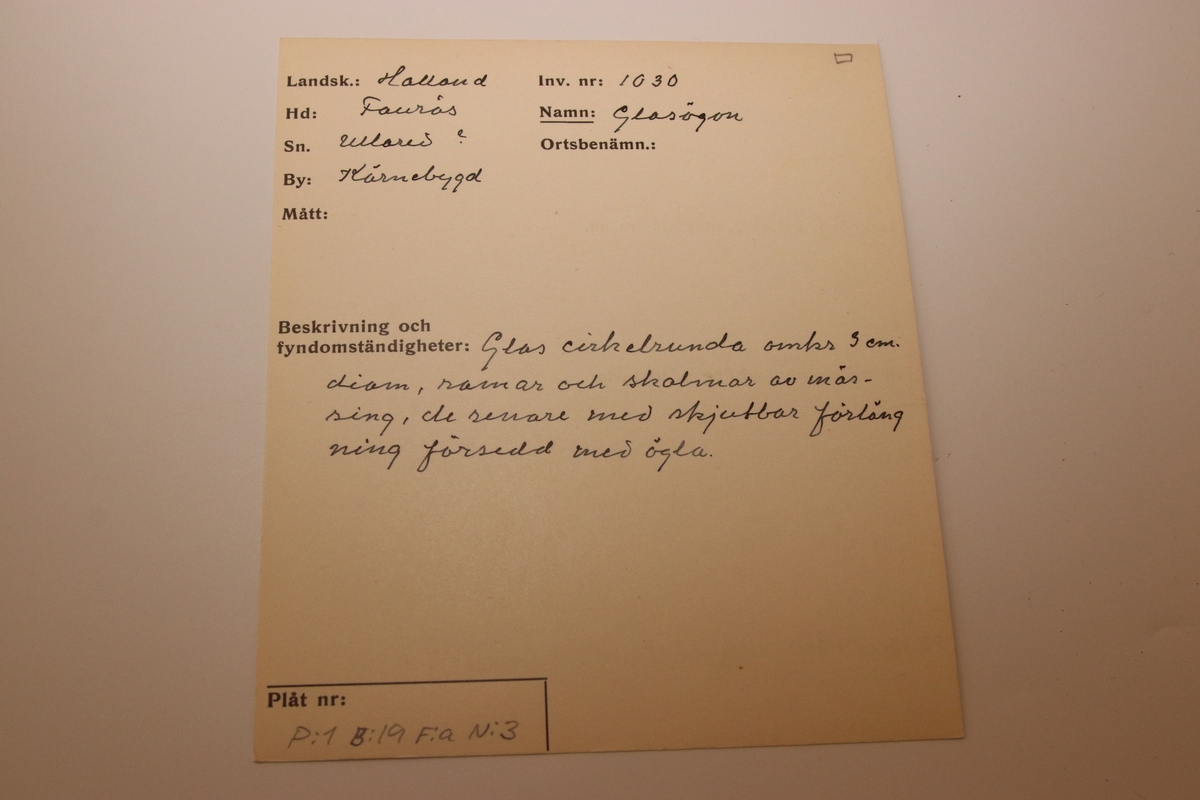 Landsk.: Halland Inv. nr: 1030
Hd: Faurås Namn: Glasögon
Sn. Ullared ? Ortsbenämn.:
By: Kärnebygd
Mått:
Beskrivning och
fyndomständigheter: Glas cirkelrunda omkr 3 cm.
diam, ramar och skalmar av mäs-
sing, de senare med skjutbar förläng
ning försedd med ögla.
Plåt nr:
P:1 B:19 F:a N:3